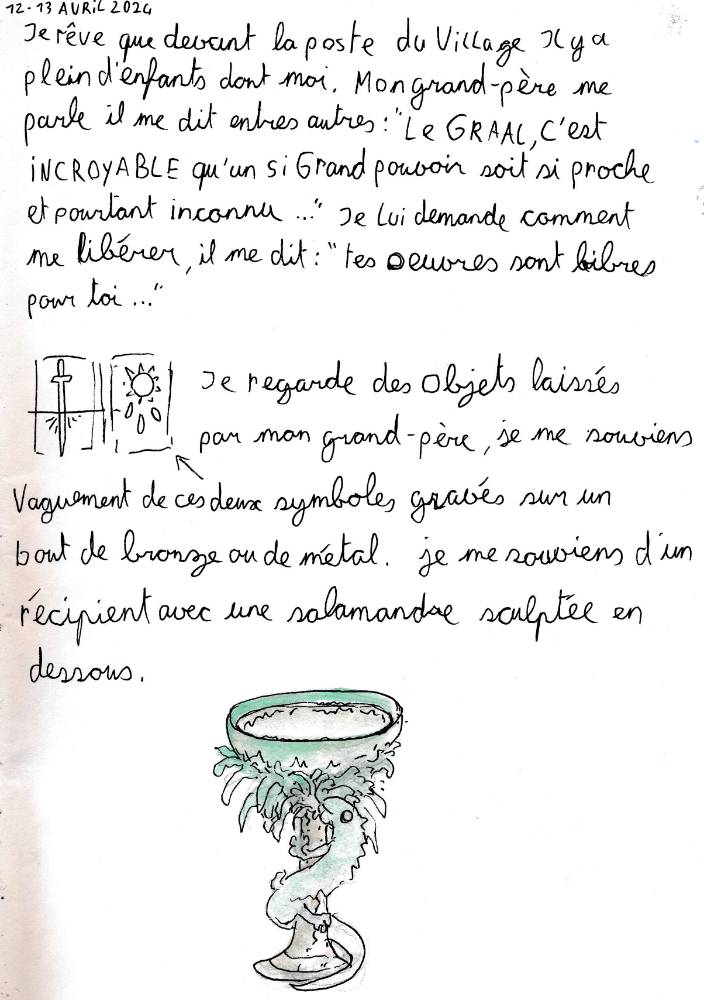 12-13 AVRiL 2024
Je rêve que devant la poste du Village Il y a
plein d'enfants dont moi. Mon grand-père me
parle il me dit entres autres : "Le GRAAL, C'est
iNCROYABLE qu'un si Grand pouvoir soit si proche
et pourtant inconnu ..." Je Lui demande comment
me libérer, il me dit : "tes oeuvres sont libres
pour toi ..."
Je regarde des Objets laissés
par mon grand-père, je me souviens
Vaguement de ces deux symboles gravés sur un
bout de bronze ou de métal. je me souviens d'un
récipient avec une salamandre sculptée en
dessous.